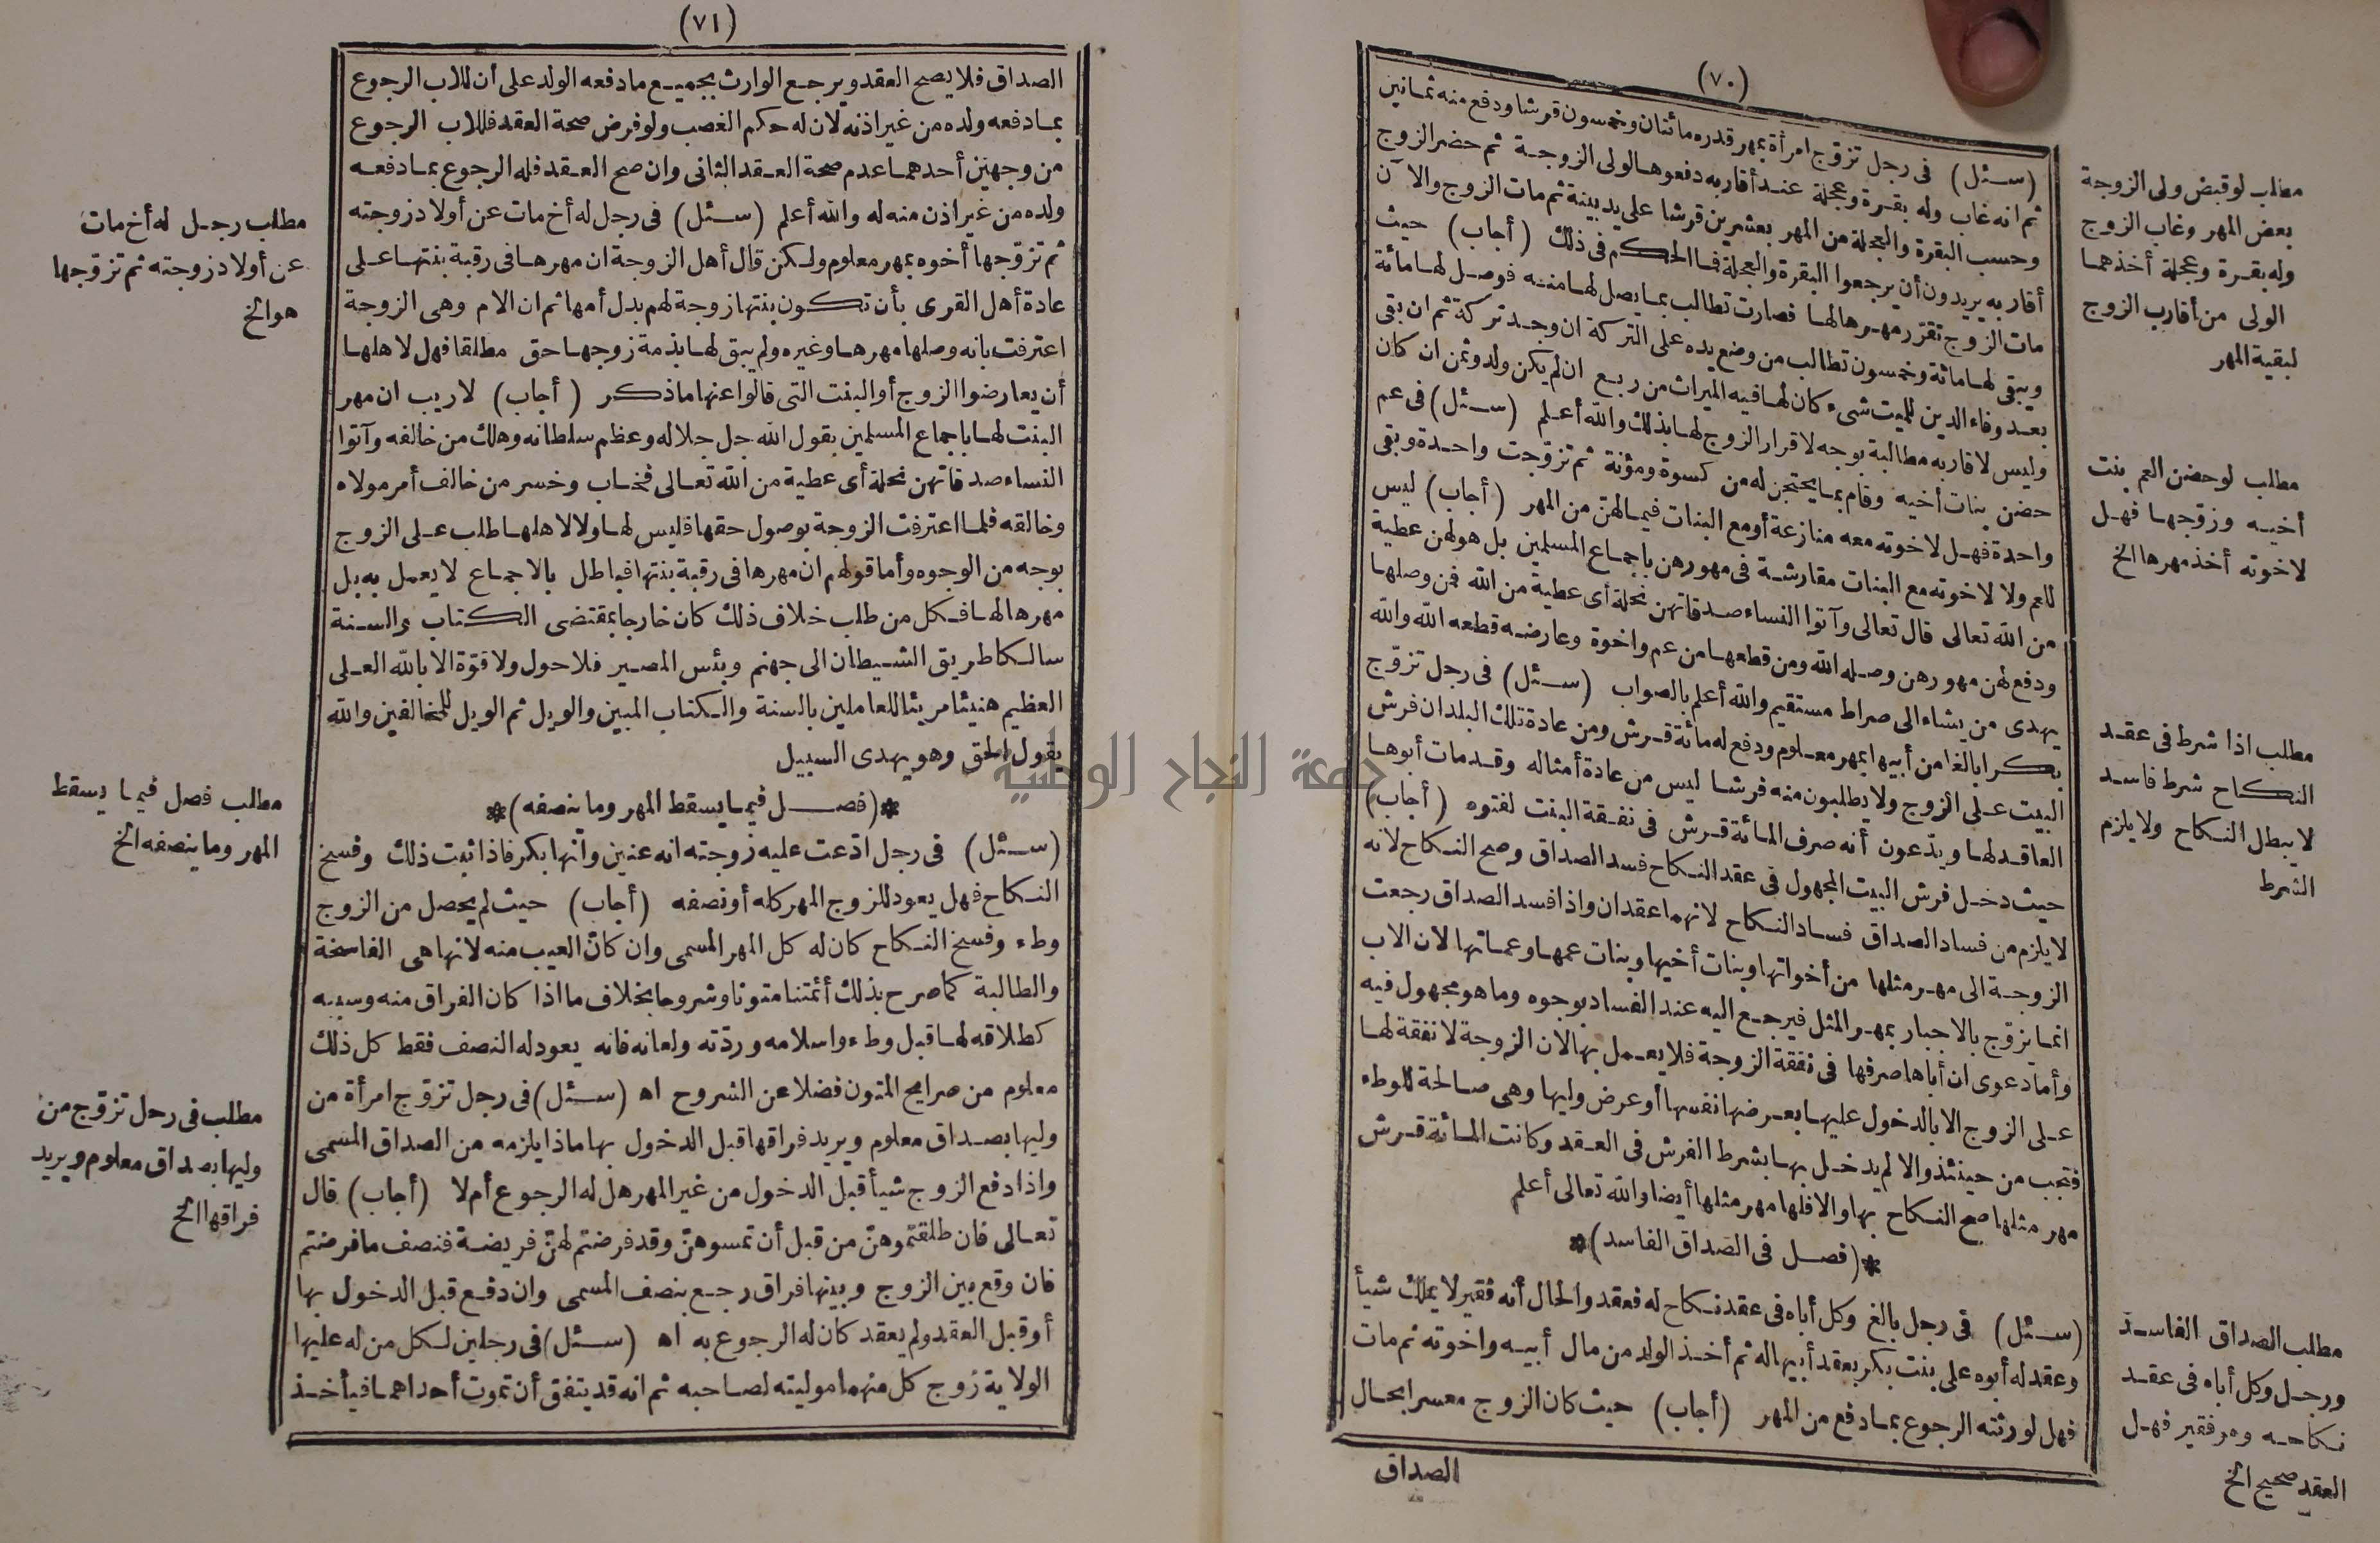 (٧٠)
(سئل) فى رجل تزوّج امرأة بمهر قدره مائتان وخمسون قرشا ودفع منه ثمانين
ثم انه غاب وله بقرة وعجلة عند أقاربه دفعوها لولى الزوجة ثم حضر الزوج
وحسب البقرة والعجلة من المهر بعشرين قرشا على يد بينة ثم مات الزوج والآن
أقاربه يريدون أن يرجعوا البقرة والعجلة فما الحكم فى ذلك (أجاب) حيث
مات الزوج تقرّر مهرها لها فصارت تطالب بما يصل لها منه فوصل لها مائة
ويبقى لها مائة وخمسون تطالب من وضع يده على التركة ان وجد تركة ثم ان بقى
بعد وفاء الدين للميت شىء كان لها فيه الميراث من ربع ان لم يكن ولد وثمن ان كان
وليس لاقاربه مطالبة بوجه لاقرار الزوج لها بذلك والله أعلم (سئل) فى عم
حضن بنات أخيه وقام بما يحتجن له من كسوة ومؤنة ثم تزوّجت واحدة وبقى
واحدة فهل لاخوته معه منازعة أو مع البنات فيما لهنّ من المهر (أجاب) ليس
للعم ولا لاخوته مع البنات مقارشة فى مهورهن باجماع المسلمين بل هو لهن عطية
من الله تعالى قال تعالى وآتوا النساء صدقاتهن نحلة أى عطية من الله فمن وصلها
ودفع لهن مهورهن وصله الله ومن قطعها من عم واخوة وعارضه قطعه الله والله
يهدى من يشاء الى صراط مستقيم والله أعلم بالصواب (سئل) فى رجل تزوّج
بكرا بالغا من أبيها بمهر معلوم ودفع له مائة قرش ومن عادة تلك البلدان فرش
البيت على الزوج ولا يطلبون منه فرشا ليس من عادة أمثاله وقد مات أبوها
العاقد لها ويدّعون أنه صرف المائة قرش فى نفقة البنت لفتوه (أجاب)
حيث دخل فرش البيت المجهول فى عقد النكاح فسد الصداق وصح النكاح لانه
لا يلزم من فساد الصداق فساد النكاح لانهما عقدان واذا فسد الصداق رجعت
الزوجة الى مهر مثلها من أخواتها وبنات أخيها وبنات عمها وعماتها لان الاب
انما يزوّج بالاجبار بمهر المثل فيرجع اليه عند الفساد بوجوه وما هو مجهول فيه
وأما دعوى ان أباها صرفها فى نفقة الزوجة فلا يعمل بها لان الزوجة لا نفقة لها
على الزوج الا بالدخول عليها بعرضها نفسها أو عرض وليها وهى صالحة للوطء
فتجب من حينئذ والا لم يدخل بها بشرط الفرش فى العقد وكانت المائة قرش
مهر مثلها صح النكاح بها والا فلها مهر مثلها أيضا والله تعالى أعلم
*(فصل فى الصداق الفاسد)*
(سئل) فى رجل بالغ وكل أباه فى عقد نكاح له فعقد والحال أنه فقير لا يملك شيأ
وعقد له أبوه على بنت بكر بعقد أبيها له ثم أخذ الولد من مال أبيه واخوته ثم مات
فهل لورثته الرجوع بما دفع من المهر (أجاب) حيث كان الزوج معسرا بحال
الصداق
مطلب لو قبض ولى الزوجة
بعض المهر وغاب الزوج
وله بقرة وعجلة أخذهما
الولى من أقارب الزوج
لبقية المهر
مطلب لو حضن العم بنت
أخيه وزوّجها فهل
لاخوته أخذ مهرها الخ
مطلب اذا شرط فى عقد
النكاح شرط فاسد
لا يبطل النكاح ولا يلزم
الشرط
مطلب الصداق الفاسد
ورجل وكل أباه فى عقد
نكاحه وهو فقير فهل
العقد صحيح الخ
(٧١)
الصداق فلا يصح العقد ويرجع الوارث بجميع ما دفعه الولد على أن للاب الرجوع
بما دفعه ولده من غير اذنه لان له حكم الغصب ولو فرض صحة العقد فللاب الرجوع
من وجهين أحدهما عدم صحة العقد الثانى وان صح العقد فله الرجوع بما دفعه
ولده من غير اذن منه له والله أعلم (سئل) فى رجل له أخ مات عن أولاد زوجته
ثم تزوّجها أخوه بمهر معلوم ولكن قال أهل الزوجة ان مهرها فى رقبة بنتها على
عادة أهل القرى بأن تكون بنتها زوجة لهم بدل أمها ثم ان الام وهى الزوجة
اعترفت بانه وصلها مهرها وغيره ولم يبق لها بذمة زوجها حق مطلقا فهل لاهلها
أن يعارضوا الزوج أو البنت التى قالوا عنها ما ذكر (أجاب) لا ريب ان مهر
البنت لها باجماع المسلمين بقول الله جل جلاله وعظم سلطانه وهلك من خالفه وآتوا
النساء صدقاتهن نحلة أى عطية من الله تعالى فخاب وخسر من خالف أمر مولاه
وخالقه فلما اعترفت الزوجة بوصول حقها فليس لها ولا لاهلها طلب على الزوج
بوجه من الوجوه وأما قولهم ان مهرها فى رقبة بنتها فباطل بالاجماع لا يعمل به بل
مهرها لها فكل من طلب خلاف ذلك كان خارجا بمقتضى الكتاب والسنة
سالكا طريق الشيطان الى جهنم وبئس المصير فلا حول ولا قوّة الا بالله العلى
العظيم هنيئا مريئا للعاملين بالسنة والكتاب المبين والويل ثم الويل للمخالفين والله
يقول الحق وهو يهدى السبيل
*(فصل فيما يسقط المهر وما ينصفه)*
(سئل) فى رجل ادّعت عليه زوجته انه عنين وانها بكر فاذا ثبت ذلك وفسخ
النكاح فهل يعود للزوج المهر كله أو نصفه (أجاب) حيث لم يحصل من الزوج
وطء وفسخ النكاح كان له كل المهر المسمى وان كان العيب منه لانها هى الفاسخة
والطالبة كما صرح بذلك أئمتنا متونا وشروحا بخلاف ما اذا كان الفراق منه وسببه
كطلاقه لها قبل وطء واسلامه وردّته ولعانه فانه يعود له النصف فقط كل ذلك
معلوم من صرايح المتون فضلا عن الشروح اه (سئل) فى رجل تزوّج امرأة من
وليها بصداق معلوم ويريد فراقها قبل الدخول بها ماذا يلزمه من الصداق المسمى
واذا دفع الزوج شيأ قبل الدخول من غير المهر هل له الرجوع أم لا (أجاب) قال
تعالى فان طلقتموهنّ من قبل أن تمسوهنّ وقد فرضتم لهنّ فريضة فنصف ما فرضتم
فان وقع بين الزوج وبينها فراق رجع بنصف المسمى وان دفع قبل الدخول بها
أو قبل العقد ولم يعقد كان له الرجوع به اه (سئل) فى رجلين لكل من له عليها
الولاية زوج كل منهما موليته لصاحبه ثم انه قد يتفق أن تموت أحداهما فيأخذ
مطلب رجل له أخ مات
عن أولاد زوجته ثم تزوّجها
هو الخ
مطلب فصل فيما يسقط
المهر وما ينصفه الخ
مطلب فى رجل تزوّج من
وليها بصداق معلوم ويريد
فراقها الخ
جامعة النجاح الوطنية